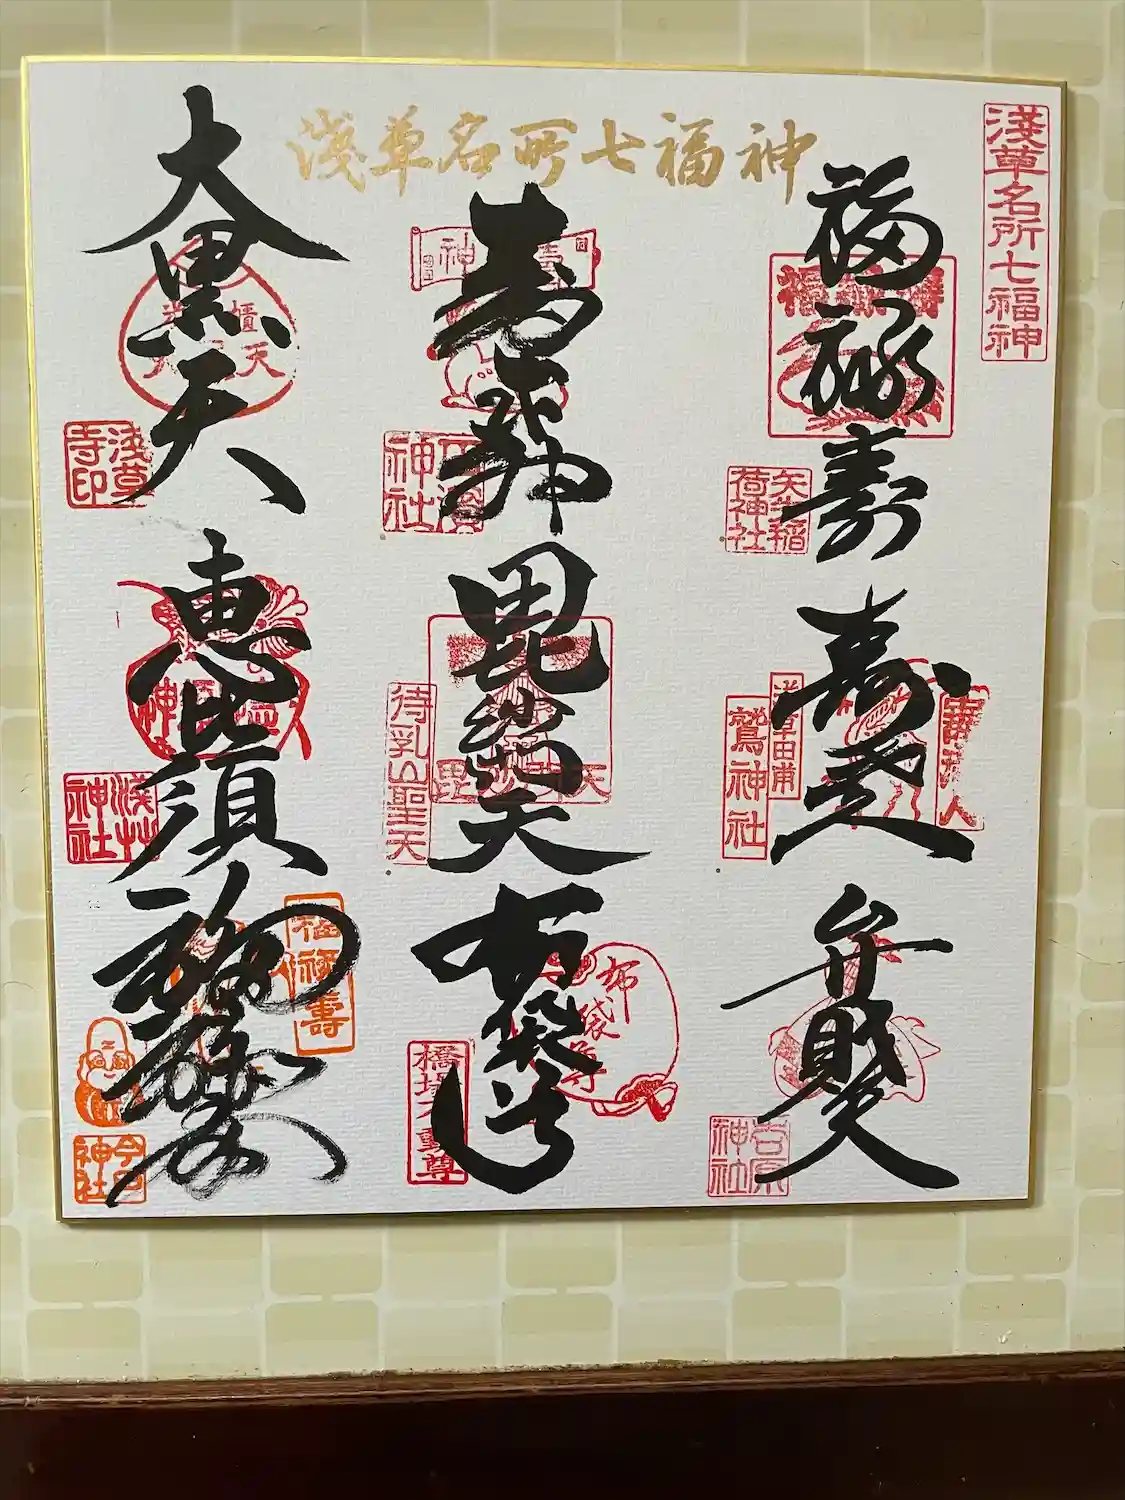 浅草名所七福神
淺草名所七福神
福禄寿
矢先稲
荷神社
寿老人
寿老人
浅草田甫
鷲神社
弁財天
吉原
神社
寿老神
神社
毘沙門天
毘沙門天
待乳山聖天
布袋尊
布袋尊
橋場不動尊
大黒天
浅草
寺印
恵比須
浅草
神社
福禄寿
福禄壽
今戸
神社